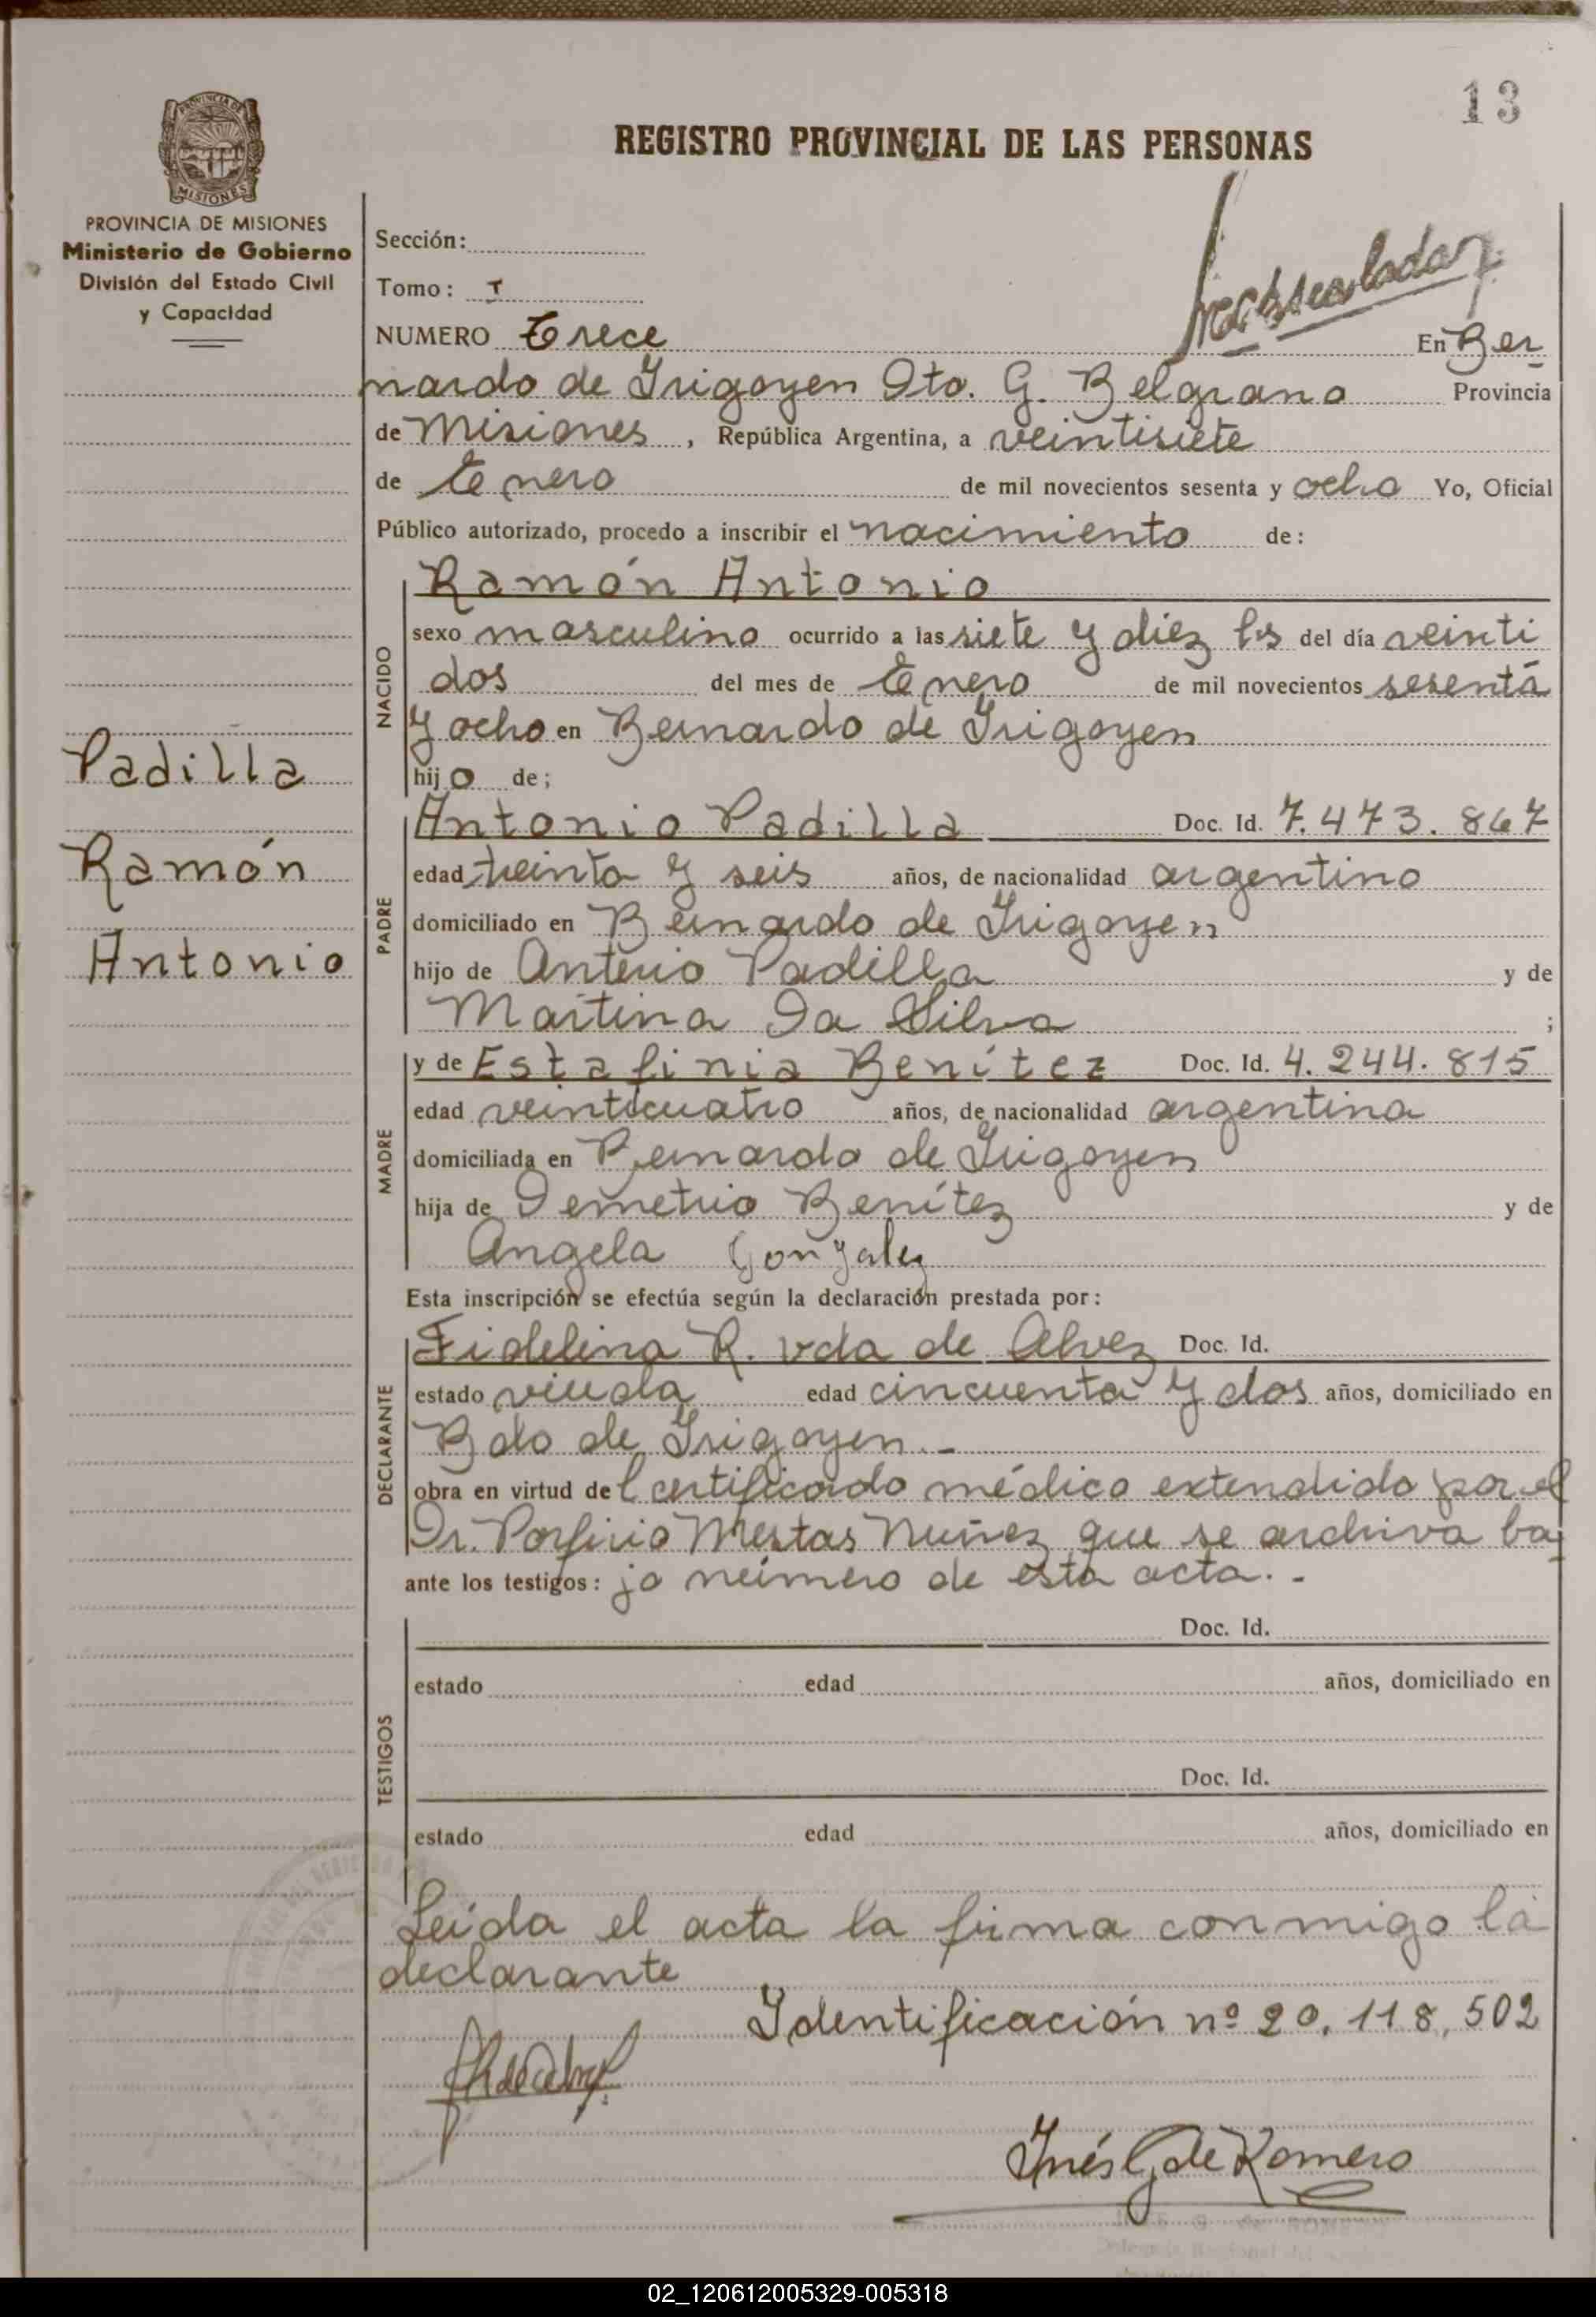 13
REGISTRO PROVINCIAL DE LAS PERSONAS
PROVINCIA DE
MISIONES
PROVINCIA DE MISIONES
Ministerio de Gobierno
División del Estado Civil
y Capacidad
Sección:
Tomo: I
NUMERO Trece En Ber
nardo de Irigoyen Dto. G. Belgrano Provincia
de Misiones, República Argentina, a veintisiete
de Enero de mil novecientos sesenta y ocho Yo, Oficial
Público autorizado, procedo a inscribir el nacimiento de:
NACIDO
Ramón Antonio
sexo masculino ocurrido a las siete y diez hs del día veinti
dos del mes de Enero de mil novecientos sesenta
y ocho en Bernardo de Irigoyen
hijo de;
Padilla
Ramón
Antonio
PADRE
Antonio Padilla Doc. Id. 7.473.867
edad treinta y seis años, de nacionalidad argentino
domiciliado en Bernardo de Irigoyen
hijo de Anterio Padilla y de
Martina Da Silva ;
MADRE
y de Estafinia Benítez Doc. Id. 4.244.815
edad veinticuatro años, de nacionalidad argentina
domiciliada en Bernardo de Irigoyen
hija de Demetrio Benítez y de
Angela Gonzalez
Esta inscripción se efectúa según la declaración prestada por:
DECLARANTE
Fidelina R. vda de Alvez Doc. Id.
estado viuda edad cincuenta y dos años, domiciliado en
Bdo de Irigoyen.-
obra en virtud del certificado médico extendido por el
Dr. Porfirio Mestas Nuñez que se archiva ba
ante los testigos: jo número de esta acta.-
TESTIGOS
Doc. Id.
estado edad años, domiciliado en
Doc. Id.
estado edad años, domiciliado en
Leída el acta la firma conmigo la
declarante
Identificación nº 20.118.502
Inés G de Romero
02_120612005329-005318